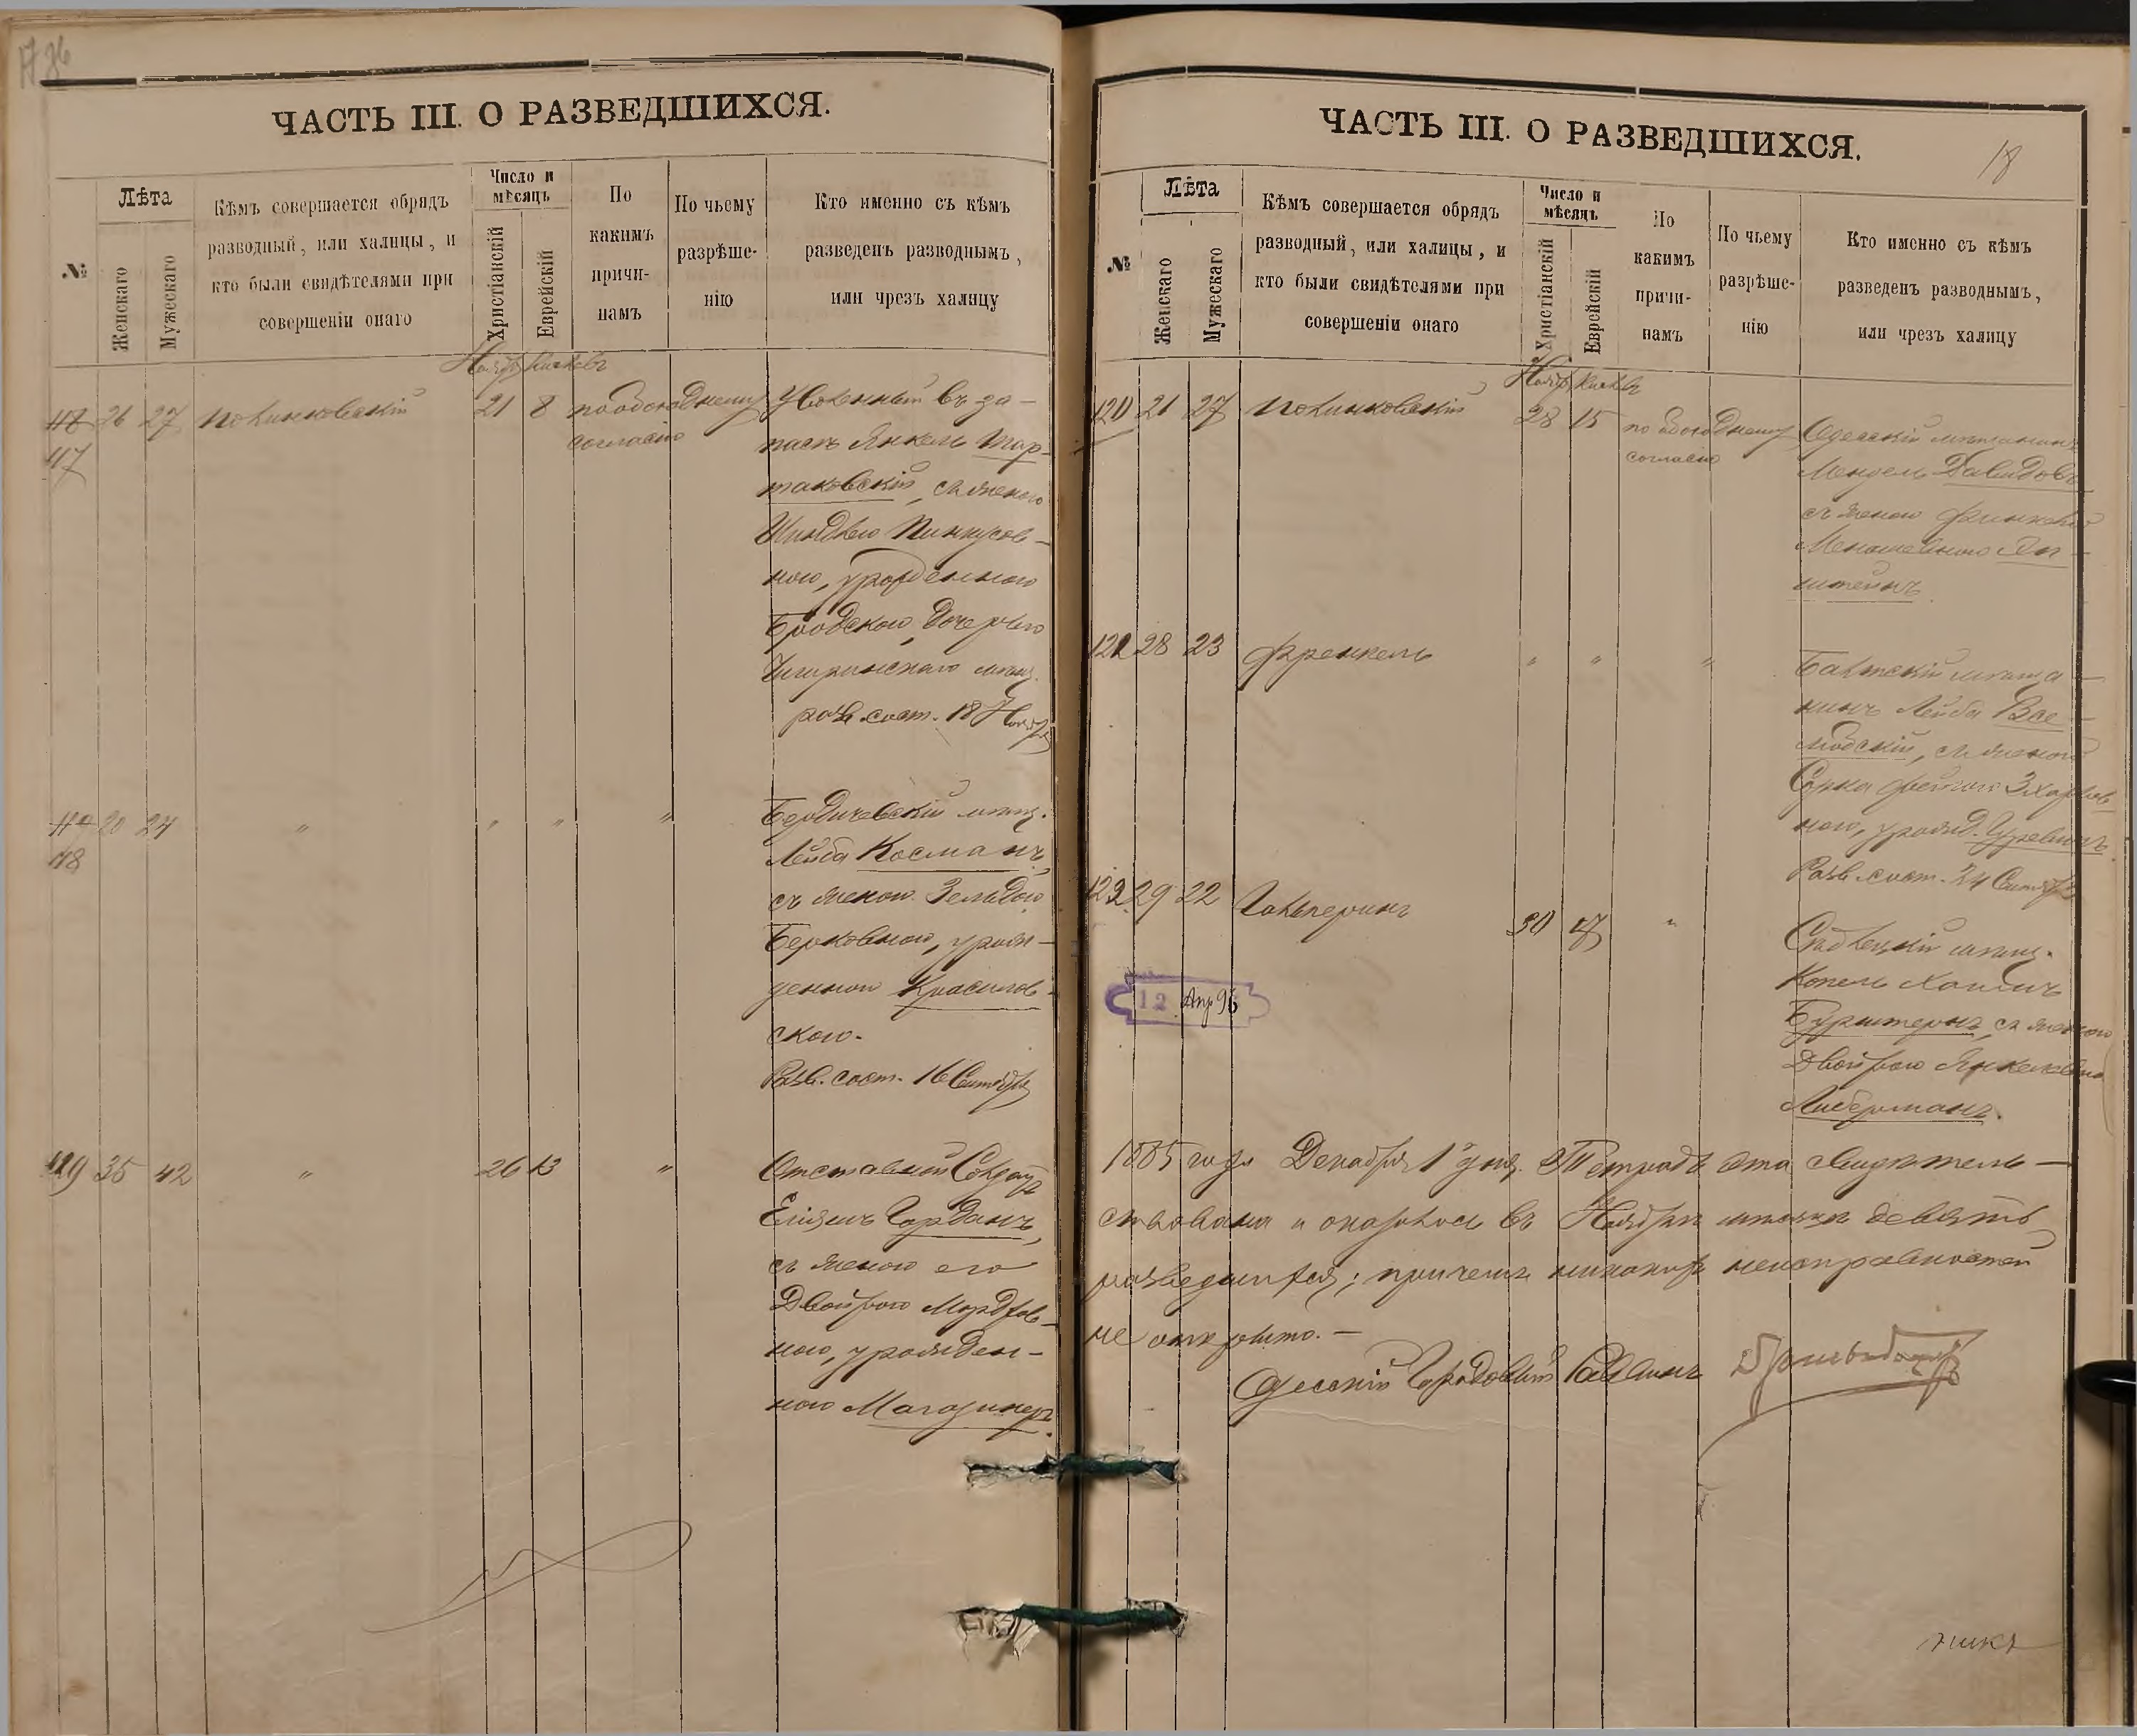 ЧАСТЬ III. О РАЗВЕДШИХСЯ.
№
Лѣта
Женскаго
Мужескаго
Кѣмъ совершается обрядъ
разводный, или халицы, и
кто были свидѣтелями при
совершеніи онаго
Число и
мѣсяцъ
Христіанскій
Еврейскій
По
какимъ
причи-
намъ
По чьему
разрѣше-
нію
Кто именно съ кѣмъ
разведенъ разводнымъ,
или чрезъ халицу
Ноябрь Кислевъ
118 26 27 Полинковскій 21 8 по обоюдному
согласію
117
Уволенный въ за-
пасъ Янкель Тар-
таковскій, съ женою
Шиндлею Пинкусов-
ною, урожденною
Бродскою, дочерью
Чигиринскаго мѣщ.
разв. сост. 18 Ноября
119 20 24 " " " "
118
Бердичевскій мѣщ.
Лейба Косманъ,
съ женою Зельдою
Берковною, урож-
денною Красилов-
скою.
Разв. сост. 16 Сентября
119 35 42 " 26 13 "
Отставной Солдатъ
Еліяшъ Горданъ,
съ женою его
Двойрою Мордков-
ною, урожден-
ною Магазинеръ.
ЧАСТЬ III. О РАЗВЕДШИХСЯ.
18
№
Лѣта
Женскаго
Мужескаго
Кѣмъ совершается обрядъ
разводный, или халицы, и
кто были свидѣтелями при
совершеніи онаго
Число и
мѣсяцъ
Христіанскій
Еврейскій
По
какимъ
причи-
намъ
По чьему
разрѣше-
нію
Кто именно съ кѣмъ
разведенъ разводнымъ,
или чрезъ халицу
Ноябрь Кислевъ
120 21 27 Полинковскій 28 15 по обоюдному
согласію
Одесскій мѣщанинъ
Мендель Давидовъ
съ женою
Эп-
штейнъ.
121 28 23 Френкель " " "
Балтскій мѣща-
нинъ Лейба Все-
людскій, съ женою
Сурка Фейгою
ною, урожд. Гуревичъ.
Разв. сост. 24 Сентября
122 29 22 Гальперинъ 30 17 "
мѣщ.
Копель Хаимъ
Бурштернъ, съ женою
Двойрою Янкелевною
Либерманъ.
12 Апр 96
1885 года Декабря 1 дня. Тетрадь эта свидѣтель-
ствована и оказалось въ Ноябрѣ мѣсяцѣ девять
разведшихся; причемъ никакихъ неисправностей
не открыто.
Одесскій Городовый Раввинъ